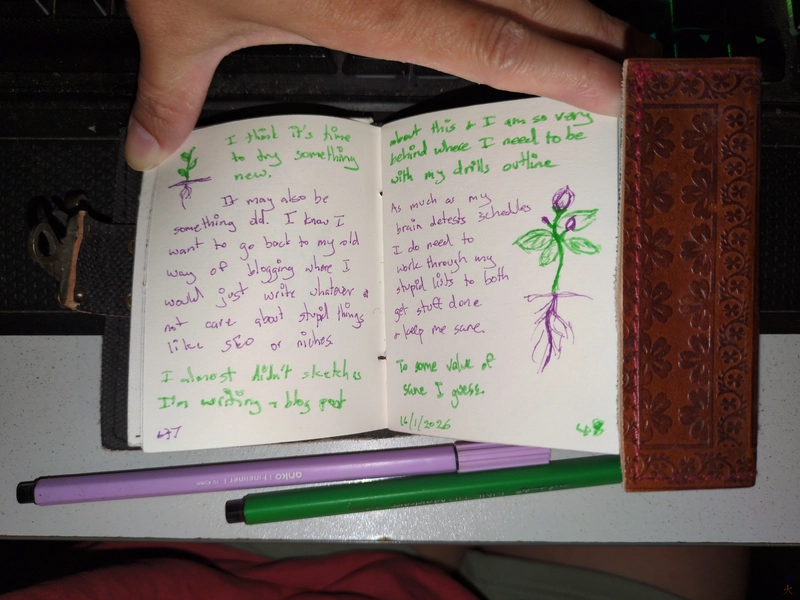 I think it's time
to try something
new.
It may also be
something old. I know I
want to go back to my old
way of blogging where I
would just write whatever &
not care about stupid things
like SEO or niches.
I almost didn't sketch as
I'm writing a blog post
47
about this & I am so very
behind where I need to be
with my drills outline
As much as my
brain detests schedules
I do need to
work through my
stupid lists to both
get stuff done
& keep me sane.
To some value of
sane I guess.
16/1/2026
48
anko fineliner